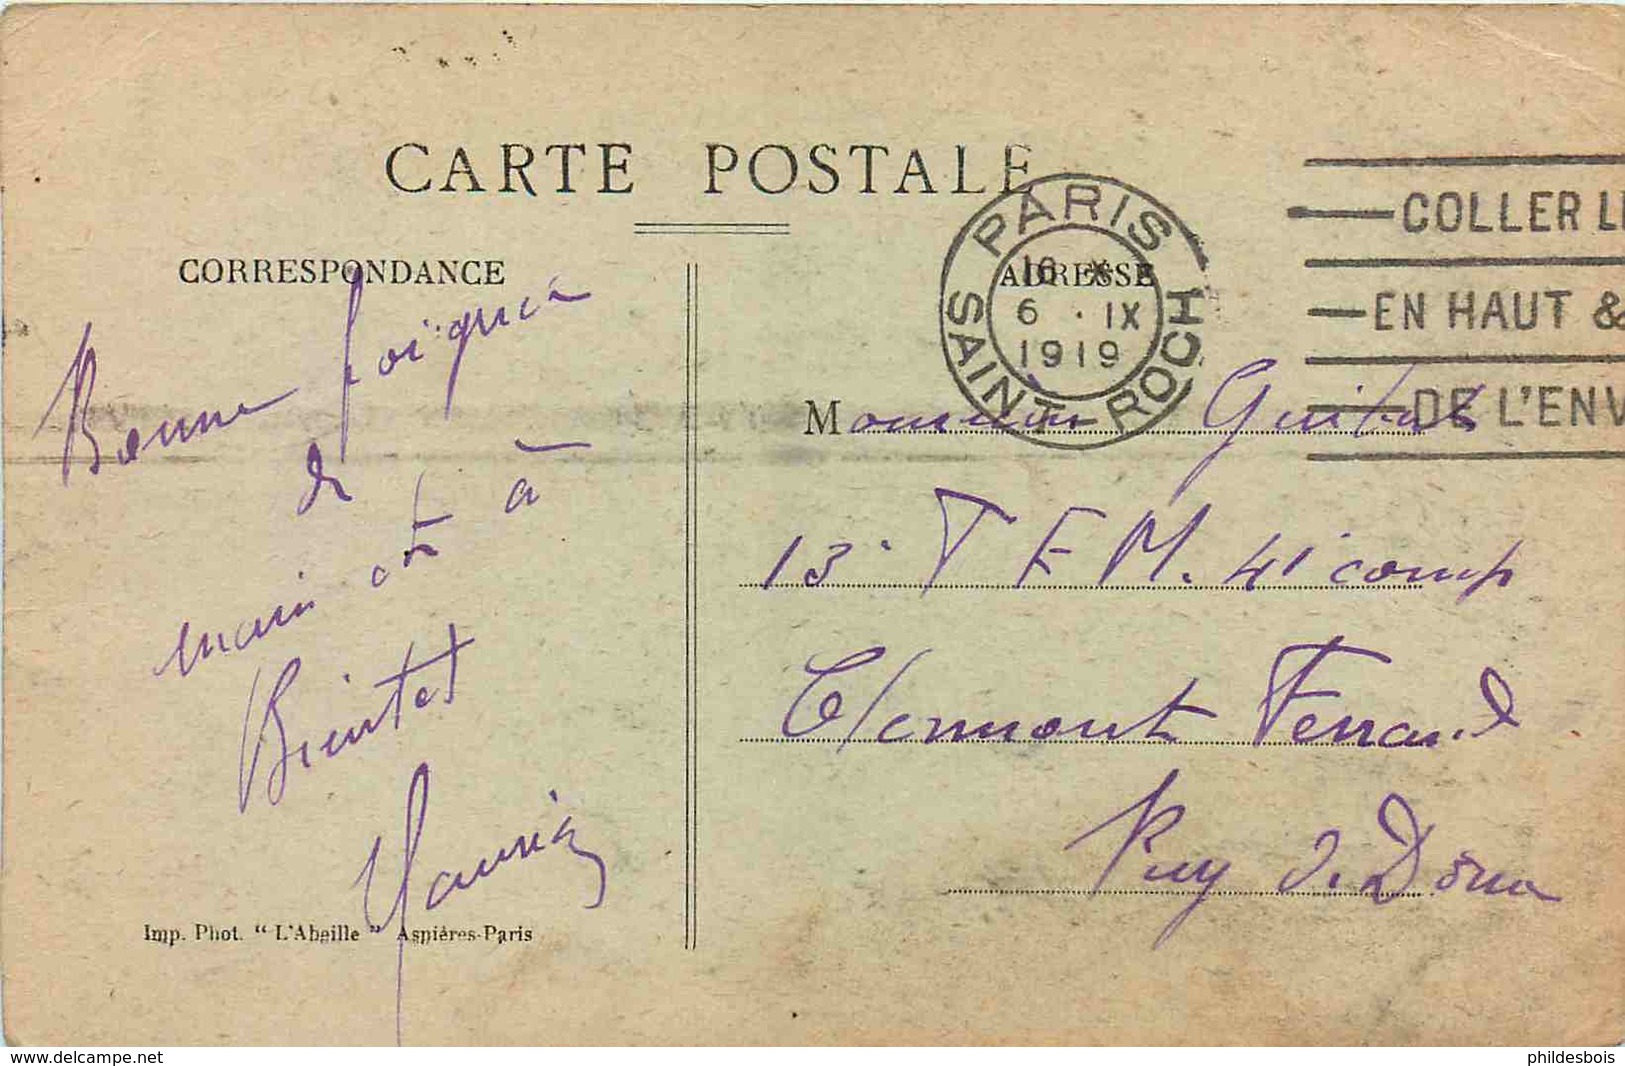 CARTE POSTALE
CORRESPONDANCE
ADRESSE
PARIS
SAINT ROCH
16
6 · IX
1919
COLLER LE
EN HAUT &
DE L'ENV
Bonne poignée
de
main et à
Bientot
Maurice
Monsieur
13e T E M. 41e comp
Clermont Ferrand
Puy de Dôme
Imp. Phot. "L'Abeille" Asnières-Paris
www.delcampe.net
phildesbois